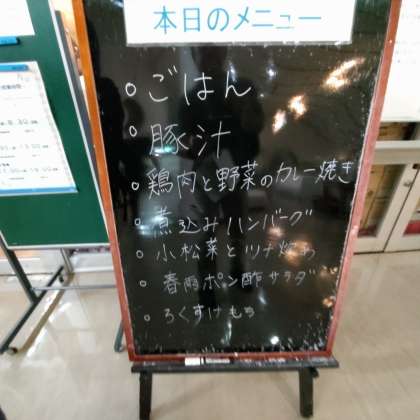 本日のメニュー
ごはん
豚汁
鶏肉と野菜のカレー焼き
煮込みハンバーグ
小松菜とツナ炒め
春雨ポン酢サラダ
ろくすけもち